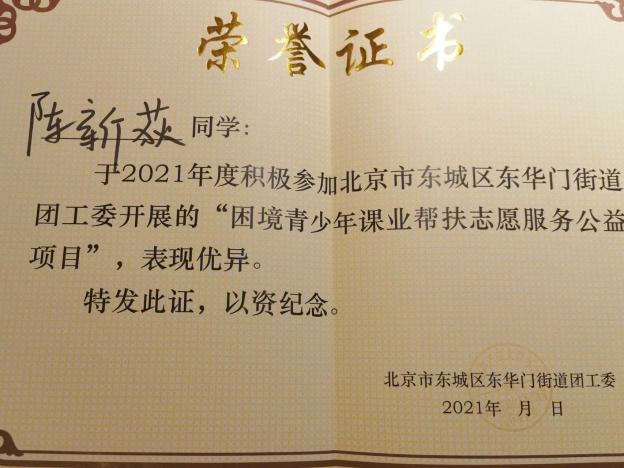 荣誉证书
陈新荻 同学：
于2021年度积极参加北京市东城区东华门街道
团工委开展的“困境青少年课业帮扶志愿服务公益
项目”，表现优异。
特发此证，以资纪念。
北京市东城区东华门街道团工委
2021年 月 日